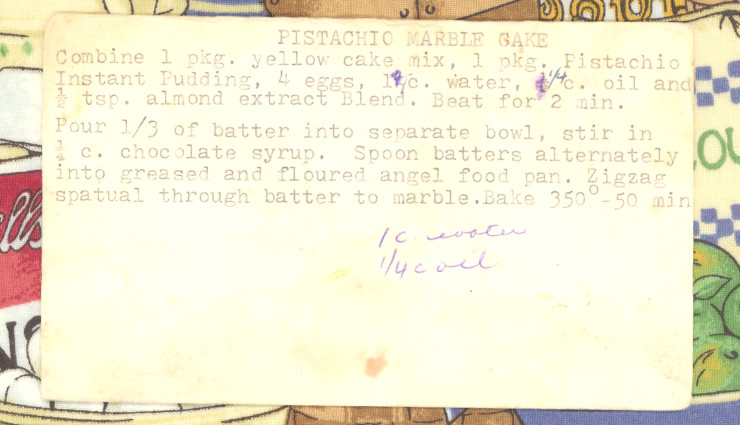 PISTACHIO MARBLE CAKE
Combine 1 pkg. yellow cake mix, 1 pkg. Pistachio
Instant Pudding, 4 eggs, 1 c. water, 1/4 c. oil and
½ tsp. almond extract Blend. Beat for 2 min.
Pour 1/3 of batter into separate bowl, stir in
c. chocolate syrup. Spoon batters alternately
into greased and floured angel food pan. Zigzag
spatual through batter to marble.Bake 350°-50 min
1 c. water
1/4 c oil